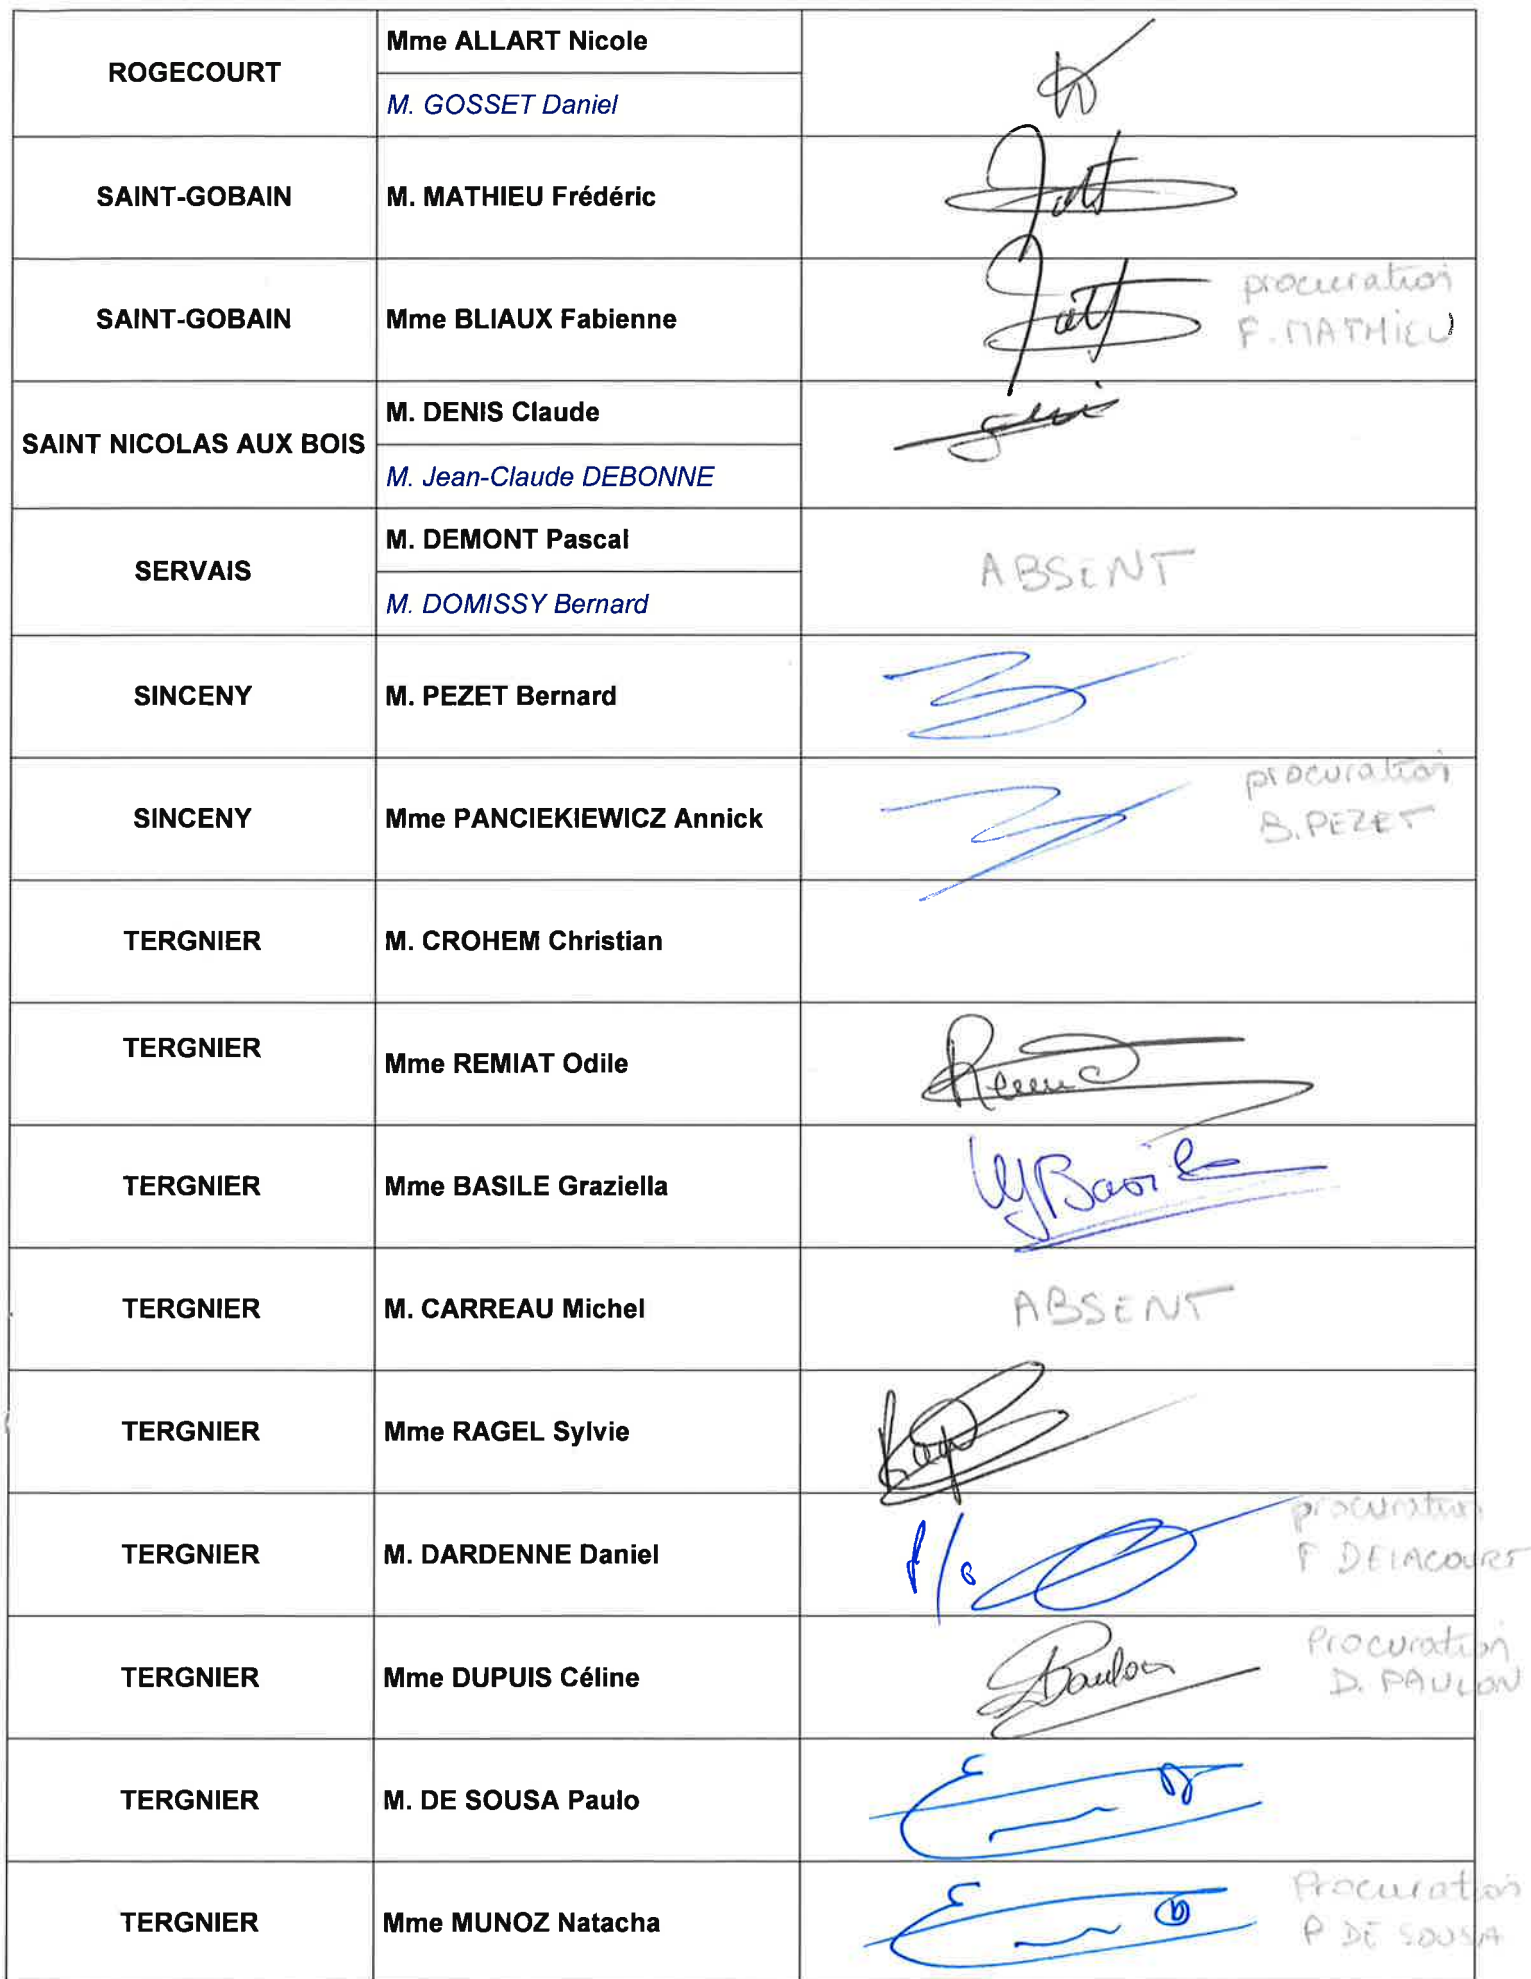 ROGECOURT
Mme ALLART Nicole
M. GOSSET Daniel
SAINT-GOBAIN
M. MATHIEU Frédéric
SAINT-GOBAIN
Mme BLIAUX Fabienne
procuration
F. MATHIEU
SAINT NICOLAS AUX BOIS
M. DENIS Claude
M. Jean-Claude DEBONNE
SERVAIS
M. DEMONT Pascal
M. DOMISSY Bernard
ABSENT
SINCENY
M. PEZET Bernard
SINCENY
Mme PANCIEKIEWICZ Annick
procuration
B. PEZET
TERGNIER
M. CROHEM Christian
TERGNIER
Mme REMIAT Odile
TERGNIER
Mme BASILE Graziella
TERGNIER
M. CARREAU Michel
ABSENT
TERGNIER
Mme RAGEL Sylvie
TERGNIER
M. DARDENNE Daniel
P/o
procuration
F DELACOURT
TERGNIER
Mme DUPUIS Céline
Paulon
Procuration
D. PAULON
TERGNIER
M. DE SOUSA Paulo
TERGNIER
Mme MUNOZ Natacha
Procuration
P DE SOUSA